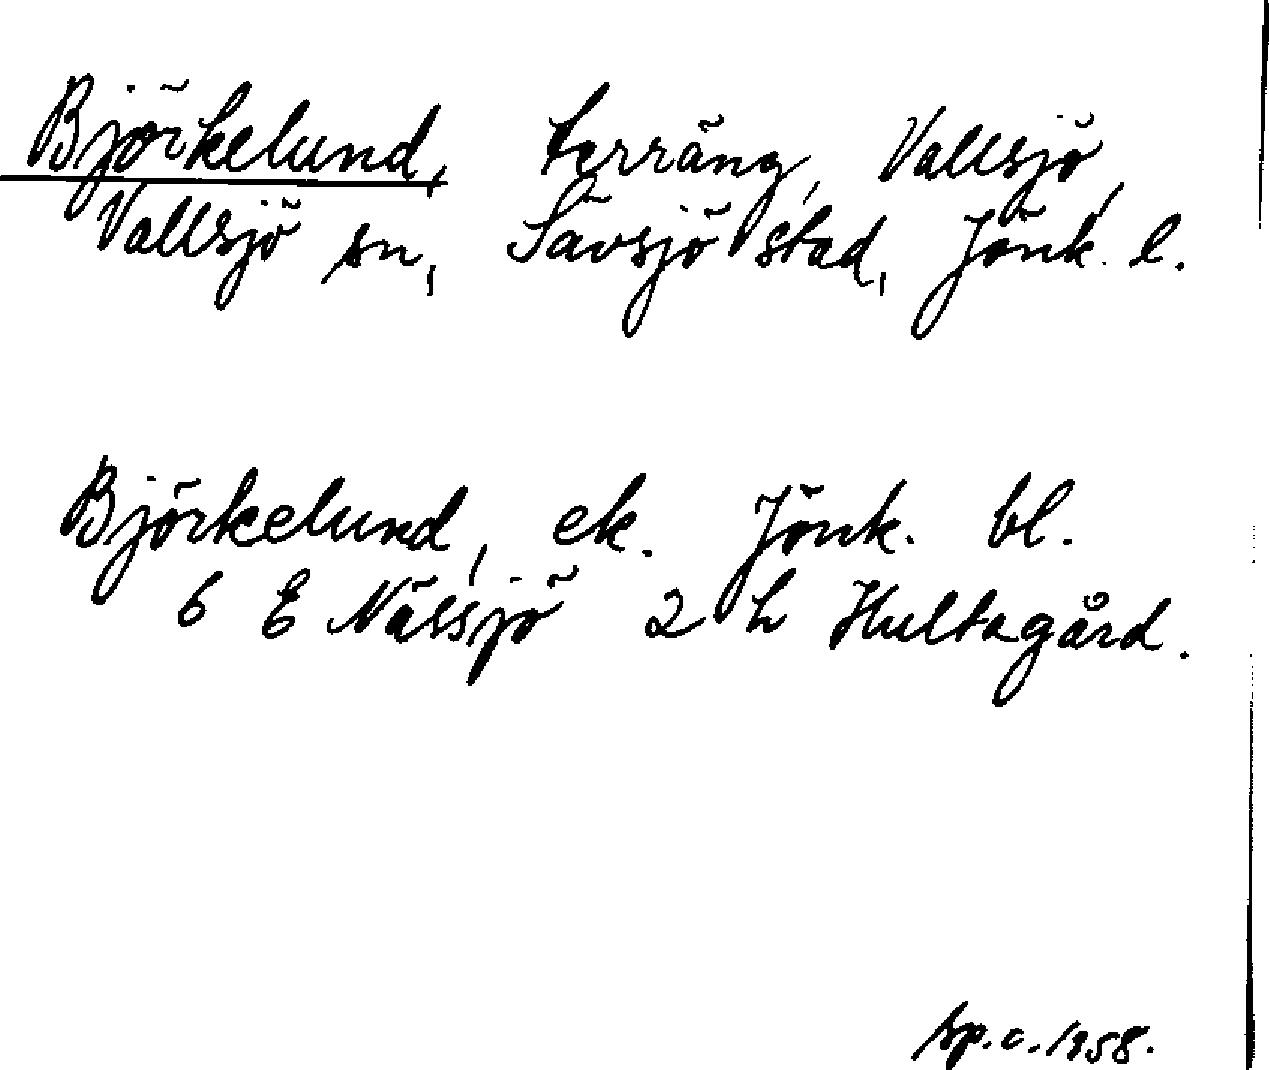 Björkelund, terräng, Vallsjö,
Vallsjö sn, Sävsjö stad, Jönk. l.
Björkelund, ek. Jönk. bl.
6 E Nässjö 2 h Hultagård.
sp.c. 1958.